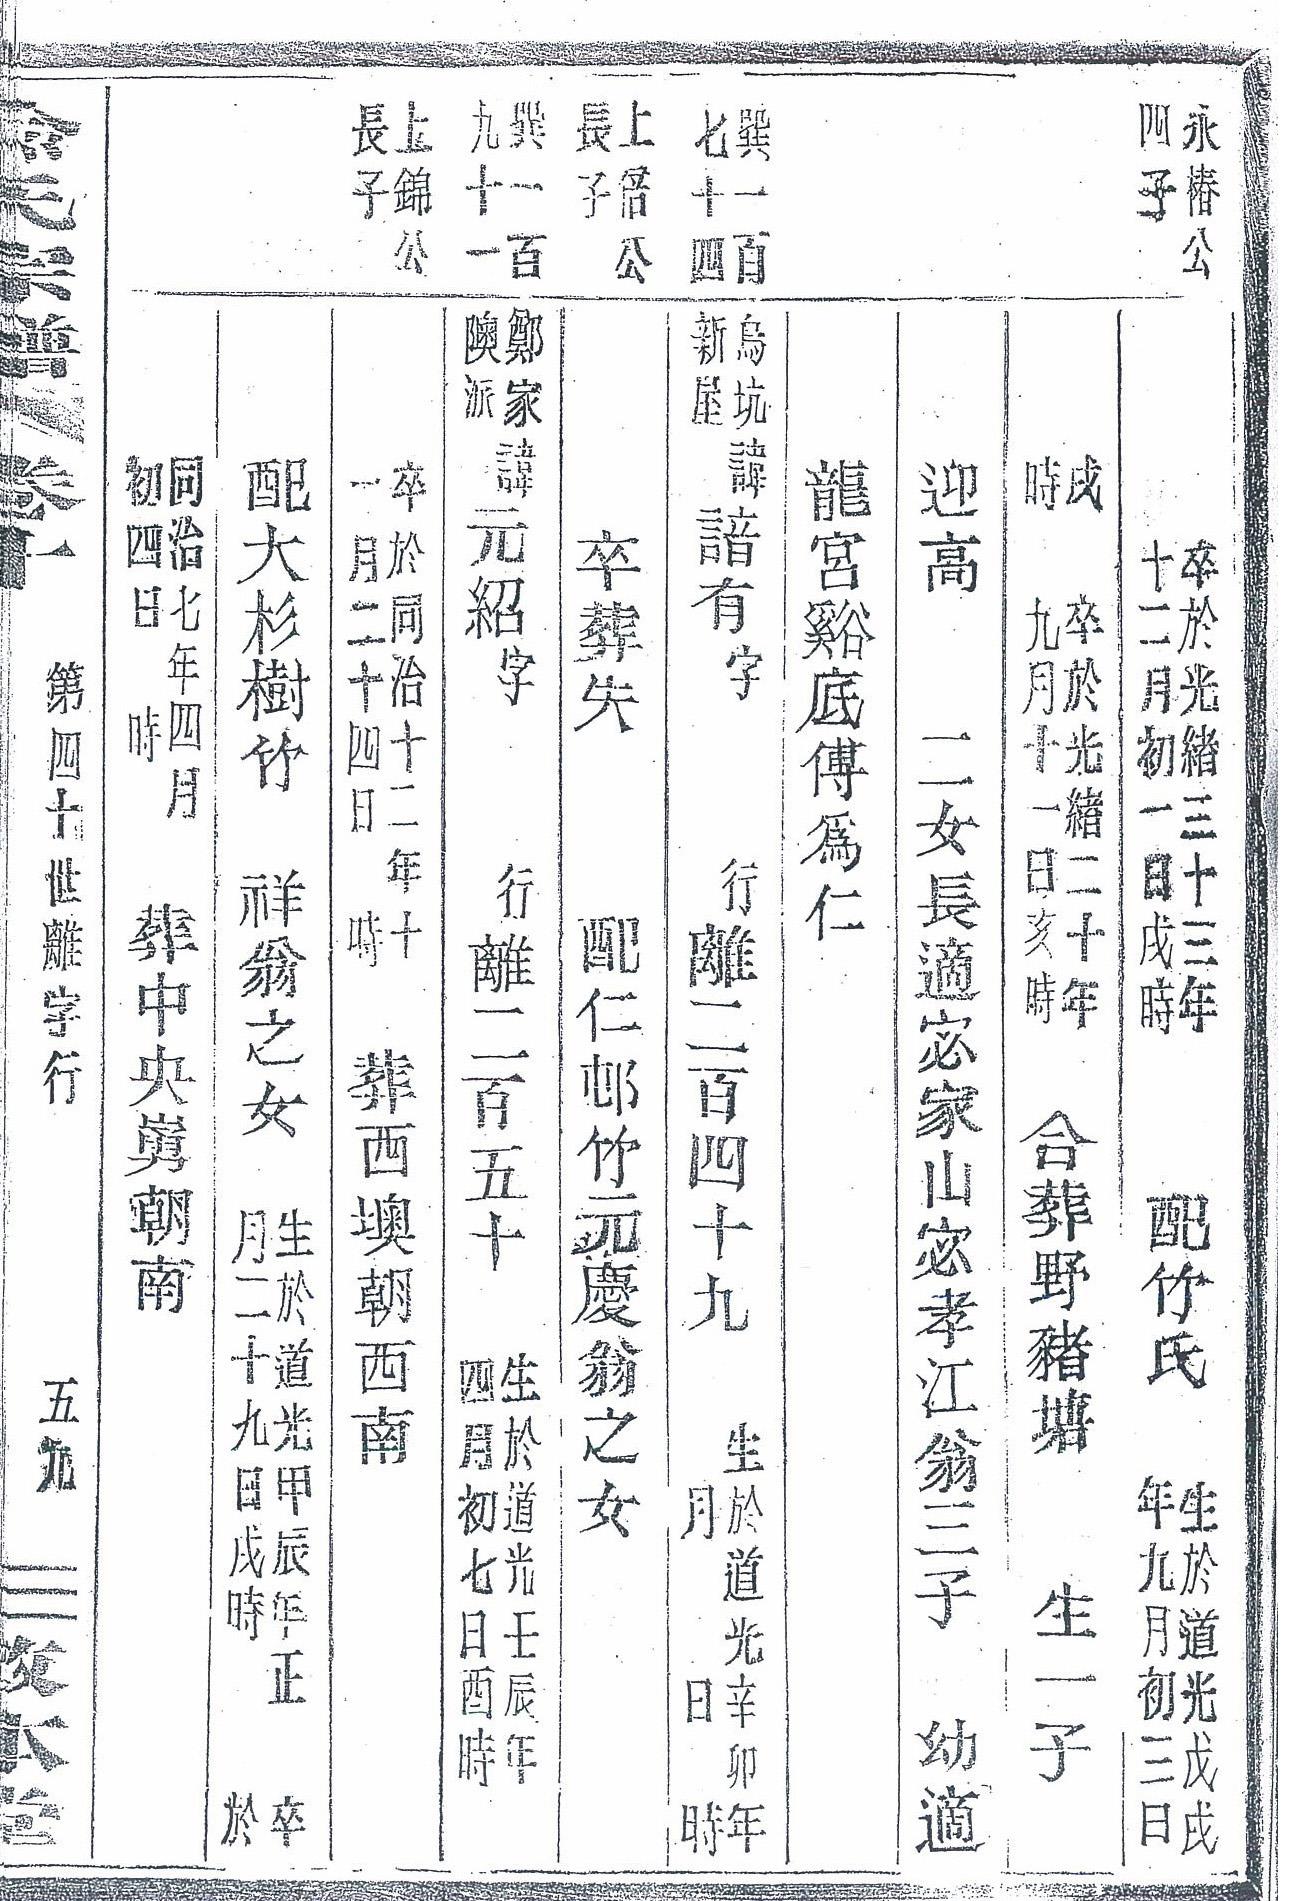 永椿公
四子
卒於光緒三十三年
十二月初一日戌時
配竹氏
生於道光戊戌
年九月初三日
戌
時
卒於光緒二十年
九月十一日亥時
合葬野豬塘
生一子
迎高
二女長適宓家山宓孝江翁三子
幼適
龍宮谿底傅爲仁
巽一百
七十四
烏坑
新屋
諱諳有字
行離二百四十九
生於道光辛卯年
月 日 時
上
公
長子
卒葬失
配仁邨竹元慶翁之女
巽一百
九十一
鄭家
隩派
諱元紹字
行離二百五十
生於道光壬辰年
四月初七日酉時
上錦公
長子
卒於同治十二年十
一月二十四日 時
葬西墺朝西南
配大杉樹竹
祥翁之女
生於道光甲辰年正
月二十九日戌時
卒
於
同治七年四月
初四日 時
葬中央嶴朝南
俞氏宗譜
卷十一
第四十世離字行
五九
敦本堂